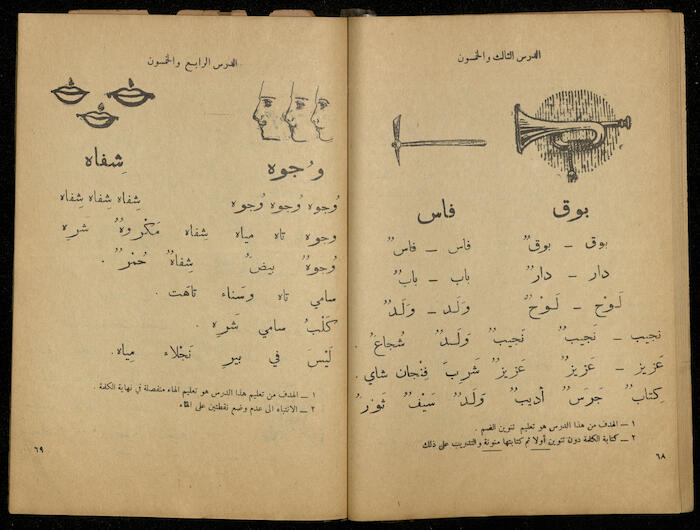 الدرس الثالث والخمسون
بوق فاس
بوق – بوقٌ فاس – فاسٌ
دار – دارٌ باب – بابٌ
لَوْح – لَوْحٌ وَلَد – وَلَدٌ
نجيب – نَجيبٌ نَجيبٌ وَلَدٌ شُجاعٌ .
عَزيز – عَزيزٌ عَزيزٌ شَرِبَ فِنْجان شاي .
كِتابٌ جَرَسٌ أديبٌ وَلَدٌ سَيْفٌ ثَوْرٌ
١ – الهدف من هذا الدرس هو تعليم تنوين الضم .
٢ – كتابة الكلمة دون تنوين أولا ثم كتابتها منونة والتدريب على ذلك
٦٨
الدرس الرابع والخمسون
وُجوه شِفاه
وُجوه وُجوه وُجوه شِفاه شِفاه شِفاه
وجوه تاه مياه شِفاه مَكْروهٌ شَرِه
وُجوهٌ بيضٌ شِفاهٌ حُمْرٌ .
سامي تاه وَسَناء تاهَت .
كَلْبُ سامي شَرِه .
لَيْسَ في بير نَجْلاء مِياه .
١ – الهدف من تعليم هذا الدرس هو تعليم الهاء منفصلة في نهاية الكلمة .
٢ – الانتباه الى عدم وضع نقطتين على الهاء
٦٩